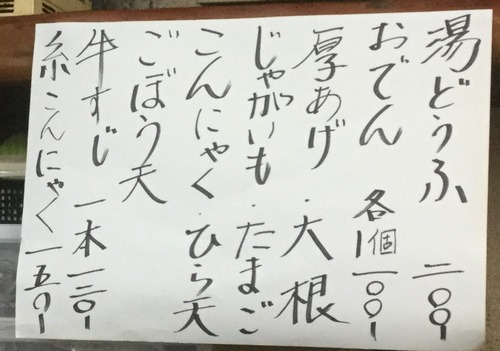 湯どうふ 二〇〇-
おでん 各1個 一〇〇-
厚あげ・大根
じゃがいも・たまご
こんにゃく・ひら天
ごぼう天
牛すじ 一本 一三〇-
糸こんにゃく 一五〇-